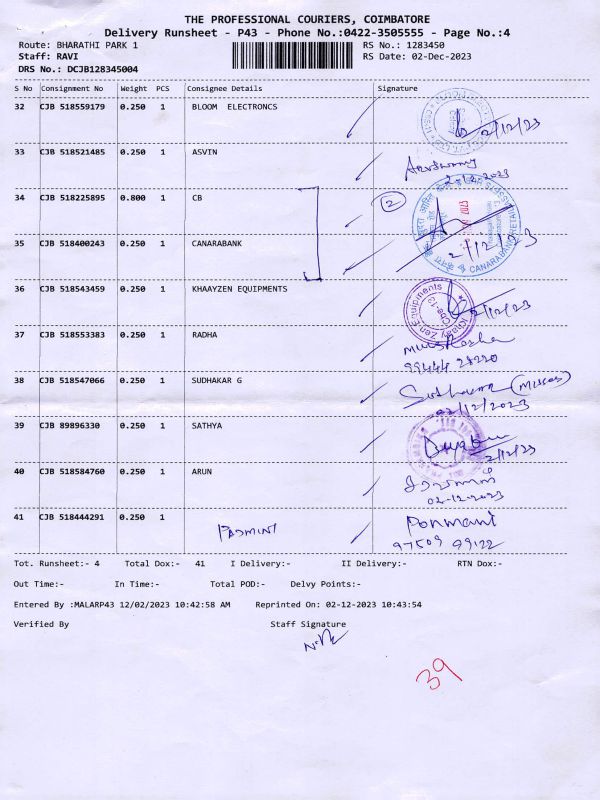 THE PROFESSIONAL COURIERS, COIMBATORE
Delivery Runsheet - P43 - Phone No.:0422-3505555 - Page No.:4
Route: BHARATHI PARK 1 RS No.: 1283450
Staff: RAVI RS Date: 02-Dec-2023
DRS No.: DCJB128345004
S No Consignment No Weight PCS Consignee Details Signature
32 CJB 518559179 0.250 1 BLOOM ELECTRONCS
2/12/23
33 CJB 518521485 0.250 1 ASVIN
2-12-2023
34 CJB 518225895 0.800 1 CB 2
35 CJB 518400243 0.250 1 CANARABANK 2/12/23
36 CJB 518543459 0.250 1 KHAAYZEN EQUIPMENTS
Khaay Zen Equipments
2/12/23
37 CJB 518553383 0.250 1 RADHA
99444 28220
38 CJB 518547066 0.250 1 SUDHAKAR G
02/12/2023
39 CJB 89896330 0.250 1 SATHYA
2/12/23
40 CJB 518584760 0.250 1 ARUN
02-12-2023
41 CJB 518444291 0.250 1 PADMINI Ponmani
97509 99122
Tot. Runsheet:- 4 Total Dox:- 41 I Delivery:- II Delivery:- RTN Dox:-
Out Time:- In Time:- Total POD:- Delvy Points:-
Entered By :MALARP43 12/02/2023 10:42:58 AM Reprinted On: 02-12-2023 10:43:54
Verified By Staff Signature
39